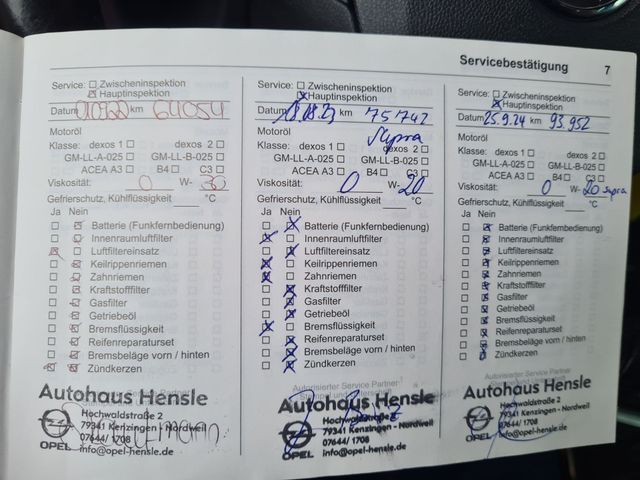 Servicebestätigung 7
Service: Zwischeninspektion
Hauptinspektion
Datum km 64054
Motoröl
Klasse: dexos 1 dexos 2
GM-LL-A-025 GM-LL-B-025
ACEA A3 B4 C3
Viskosität: 0 W- 30
Gefrierschutz, Kühlflüssigkeit °C
Ja Nein
Batterie (Funkfernbedienung)
Innenraumluftfilter
Luftfiltereinsatz
Keilrippenriemen
Zahnriemen
Kraftstofffilter
Gasfilter
Getriebeöl
Bremsflüssigkeit
Reifenreparaturset
Bremsbeläge vorn / hinten
Zündkerzen
Autohaus Hensle
Hochwaldstraße 2
79341 Kenzingen - Nordweil
07644/ 1708
OPEL info@opel-hensle.de
Service: Zwischeninspektion
Hauptinspektion
Datum 18.08.23 km 75742
Motoröl
Klasse: dexos 1 dexos 2
GM-LL-A-025 GM-LL-B-025
ACEA A3 B4 C3
Viskosität: 0 W- 20
Gefrierschutz, Kühlflüssigkeit °C
Ja Nein
Batterie (Funkfernbedienung)
Innenraumluftfilter
Luftfiltereinsatz
Keilrippenriemen
Zahnriemen
Kraftstofffilter
Gasfilter
Getriebeöl
Bremsflüssigkeit
Reifenreparaturset
Bremsbeläge vorn / hinten
Zündkerzen
Autorisierter Service Partner
Autohaus Hensle
Hochwaldstraße 2
79341 Kenzingen - Nordweil
07644/ 1708
OPEL info@opel-hensle.de
Service: Zwischeninspektion
Hauptinspektion
Datum 25.9.24 km 93.952
Motoröl
Klasse: dexos 1 dexos 2
GM-LL-A-025 GM-LL-B-025
ACEA A3 B4 C3
Viskosität: 0 W- 20 supra
Gefrierschutz, Kühlflüssigkeit °C
Ja Nein
Batterie (Funkfernbedienung)
Innenraumluftfilter
Luftfiltereinsatz
Keilrippenriemen
Zahnriemen
Kraftstofffilter
Gasfilter
Getriebeöl
Bremsflüssigkeit
Reifenreparaturset
Bremsbeläge vorn / hinten
Zündkerzen
Autorisierter Service Partner
Autohaus Hensle
Hochwaldstraße 2
79341 Kenzingen - Nordweil
07644/ 1708
OPEL info@opel-hensle.de